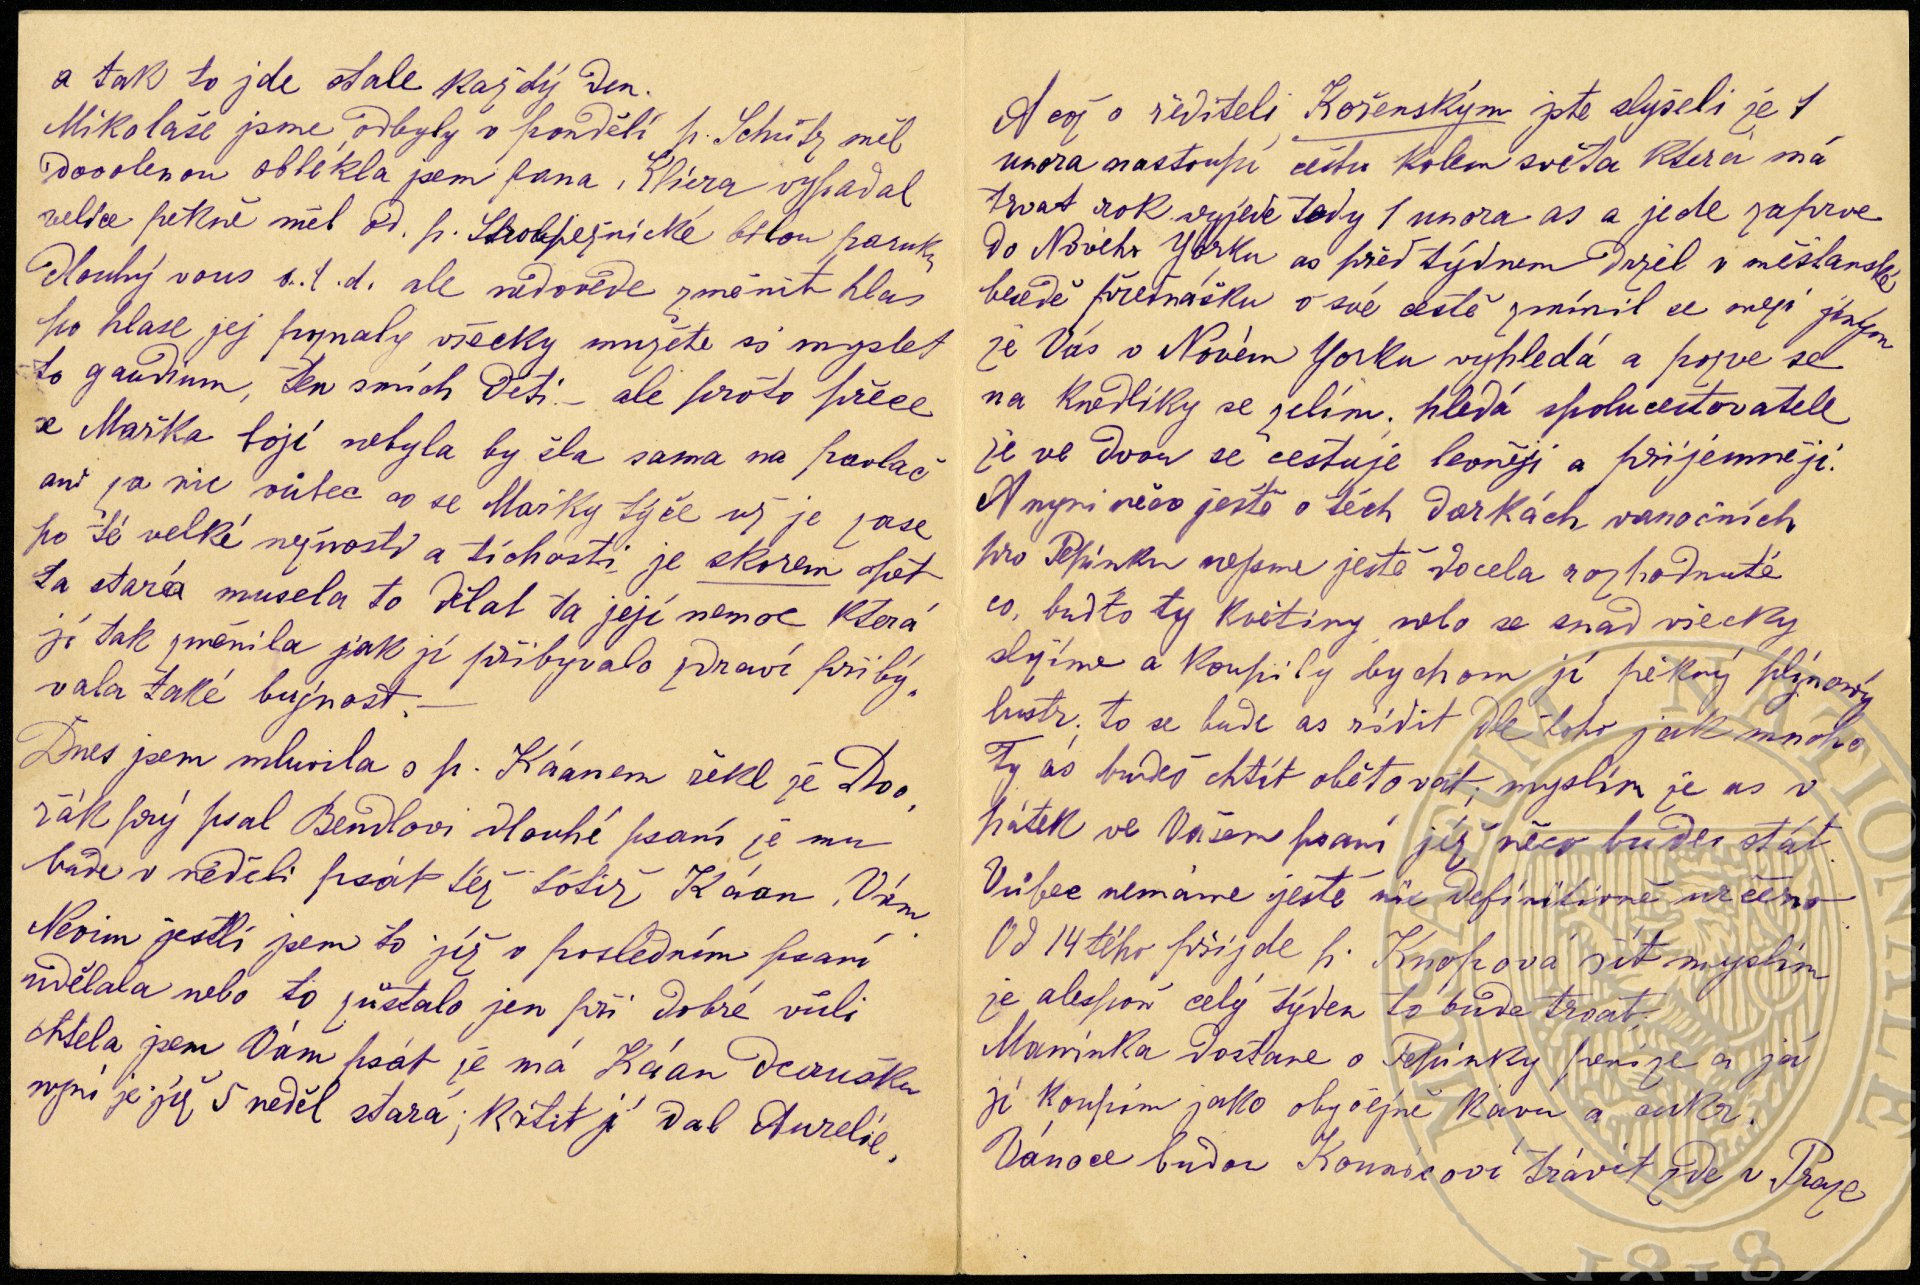 a tak to jde stale každý den.
Mikolaše jsme odbyly v pondělí p. Schütz měl
dovolenou oblékla jsem pana Klíera vypadal
velice pekně měl od. p. Strobpeźnické bílou paruku
dlouhý vous a. t. d. ale nedovéde změnit hlas
po hlase jej poznaly všecky mužete si myslet
to gaudium, ten smích dětí. – ale proto přece
se Mařka bojí nebyla by šla sama na pavlač
ani za nic vůbec co se Mařky týče už je zase
po té velké nežnosti a tichosti je skorem opět
ta stará musela to dělat ta její nemoc která
ji tak změnila jak jí přibyvalo zdraví přibý-
vala také bujnost. –
Dnes jsem mluvila s p. Káanem řekl že Dvo-
řák prý psal Bendlovi dlouhé psaní že mu
bude v neděli psát též totiž Káan Vám.
Nevim jestli jsem to již v posledním psaní
udělala nebo to zůstalo jen při dobré vůli
chtela jsem Vám psát že má Káan dcerušku
nyní je již 5 neděl stará; křtít jí dal Aurelie.
A což o řediteli Kořenským jste slyšeli že 1
unora nastoupí cestu kolem světa která má
trvat rok vyjede tedy 1 unora as a jede zaprve
do Nového Yorku as před týdnem držel v měšťanské
besedě přednášku o své cestě zmínil se mezi jiným
že Vás v Novém Yorku vyhledá a pozve se
na knedlíky se zelím. hledá spolucestovatele
že ve dvou se cestuje levněji a příjemněji.
A nyni něco ještě o těch darkách vanočních
pro Pepinku nejsme ještě docela rozhodnuté
co, buďto ty květiny nebo se snad všecky
slžíme a koupily bychom jí pěkný plynový
lustr, to se bude as řídit dle toho jak mnoho
Ty as budeš chtít obětovat; myslím že as v
pátek ve Vašem psaní již něco bude stát.
Vůbec nemáme ještě nic definitivně určeno
Od 14tého přijde p. Knopová šít myslím
že alespoň celý týden to bude trvat.
Maminka dostane o Pepinky peníze a já
jí koupím jako obyčejně kávu a cukr.
Vánoce budou Kounicoví trávit zde v Praze
MUSAEUM NATIONALE
1818